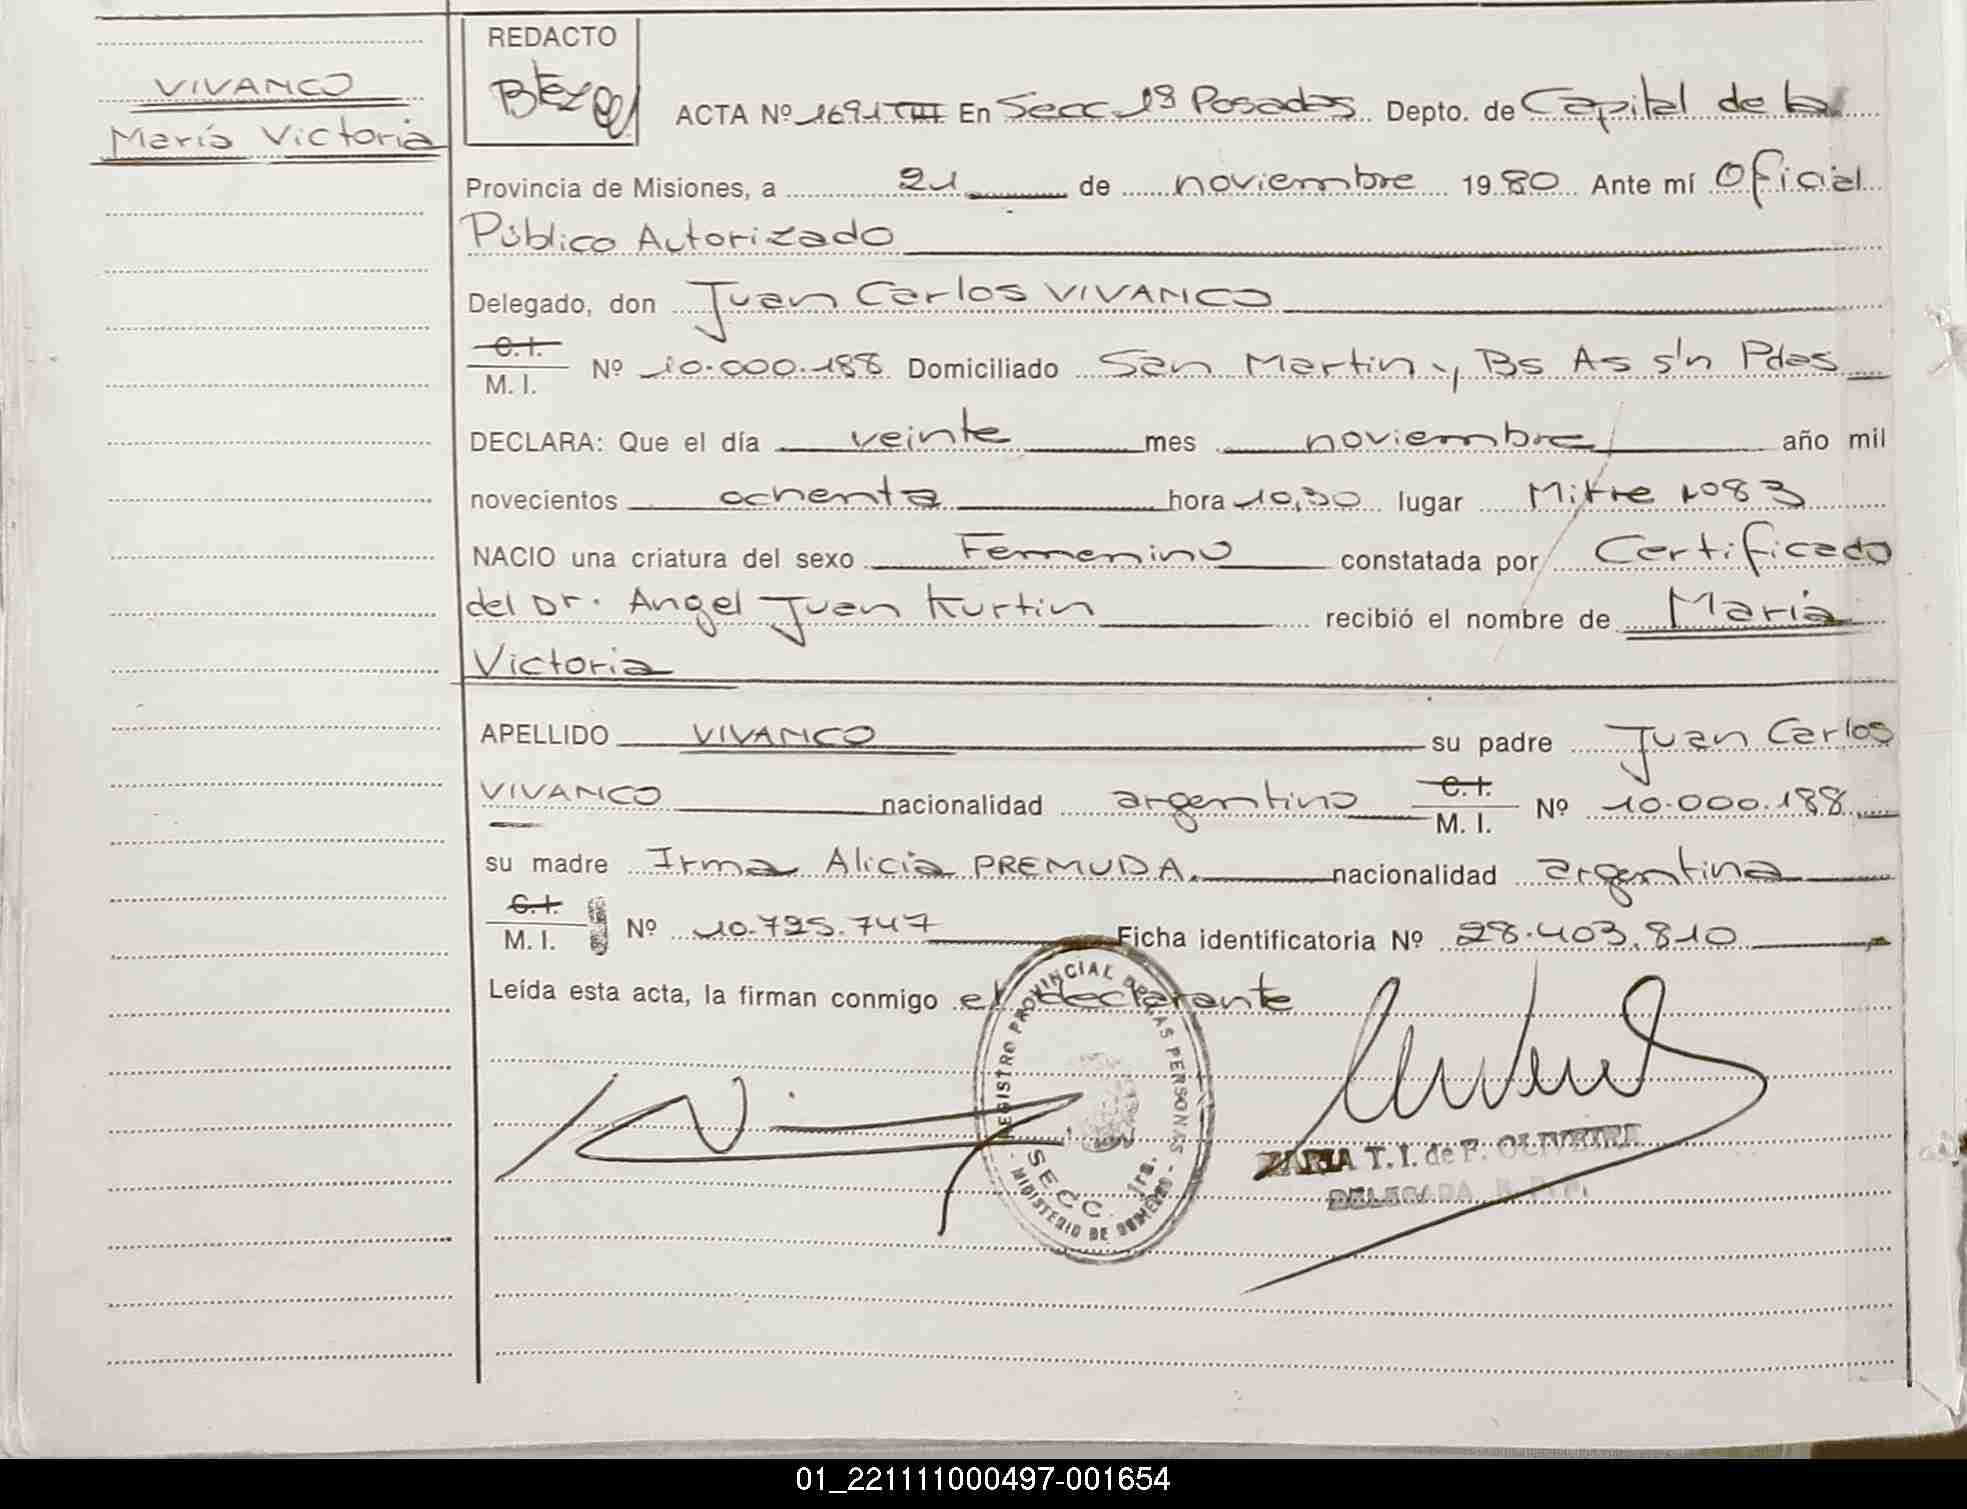 VIVANCO
María Victoria
REDACTO
ACTA Nº 1691 TIII En Secc 1ª Posadas Depto. de Capital de la
Provincia de Misiones, a 21 de noviembre 1980 Ante mí Oficial
Público Autorizado
Delegado, don Juan Carlos VIVANCO
C.I. M. I. Nº 10.000.188 Domiciliado San Martin y Bs As s/n Pdas
DECLARA: Que el día veinte mes noviembre año mil
novecientos ochenta hora 10,30 lugar Mitre 1083
NACIO una criatura del sexo Femenino constatada por Certificado
del Dr. Angel Juan Kurtin recibió el nombre de María
Victoria
APELLIDO VIVANCO su padre Juan Carlos
VIVANCO nacionalidad argentino C.I. M. I. Nº 10.000.188
su madre Irma Alicia PREMUDA. nacionalidad argentina
C.I. M. I. Nº 10.795.747 Ficha identificatoria Nº 28.403.810
Leída esta acta, la firman conmigo el declarante
REGISTRO PROVINCIAL DE LAS PERSONAS
SECC. 1ra.
MINISTERIO DE GOBIERNO
T. I. de F. OLIVEIRA
DELEGADA
01_221111000497-001654